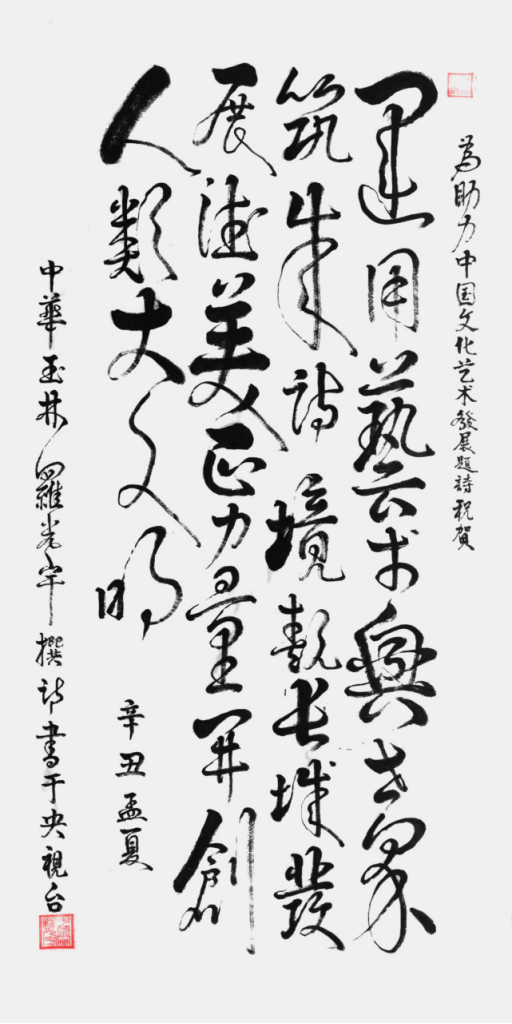 為助力中国文化艺术發展題詩祝賀
運用藝术興世
筑詩境靚長城發
展健美正力量開創
人類大文明
辛丑孟夏
中華玉林羅光宇撰詩書于央視台